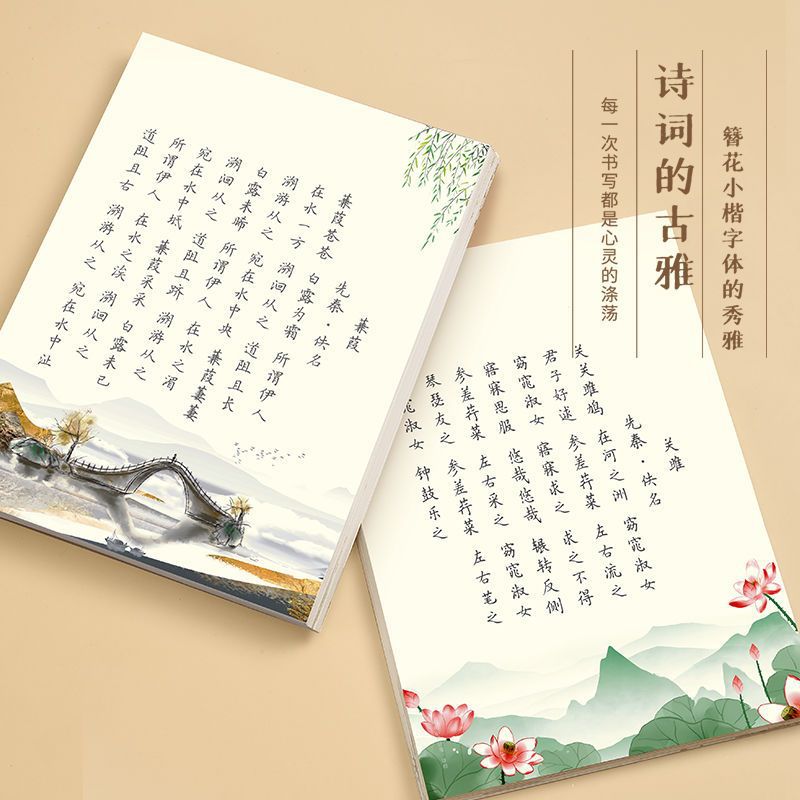 簪花小楷字体的秀雅
诗词的古雅
每一次书写都是心灵的涤荡
蒹葭
先秦·佚名
蒹葭苍苍 白露为霜 所谓伊人
在水一方 溯洄从之 道阻且长
溯游从之 宛在水中央 蒹葭萋萋
白露未晞 所谓伊人 在水之湄
溯洄从之 道阻且跻 溯游从之
宛在水中坻 蒹葭采采 白露未已
所谓伊人 在水之涘 溯洄从之
道阻且右 溯游从之 宛在水中沚
关雎
先秦·佚名
关关雎鸠 在河之洲 窈窕淑女
君子好逑 参差荇菜 左右流之
窈窕淑女 寤寐求之 求之不得
寤寐思服 悠哉悠哉 辗转反侧
参差荇菜 左右采之 窈窕淑女
琴瑟友之 参差荇菜 左右笔之
窕淑女 钟鼓乐之